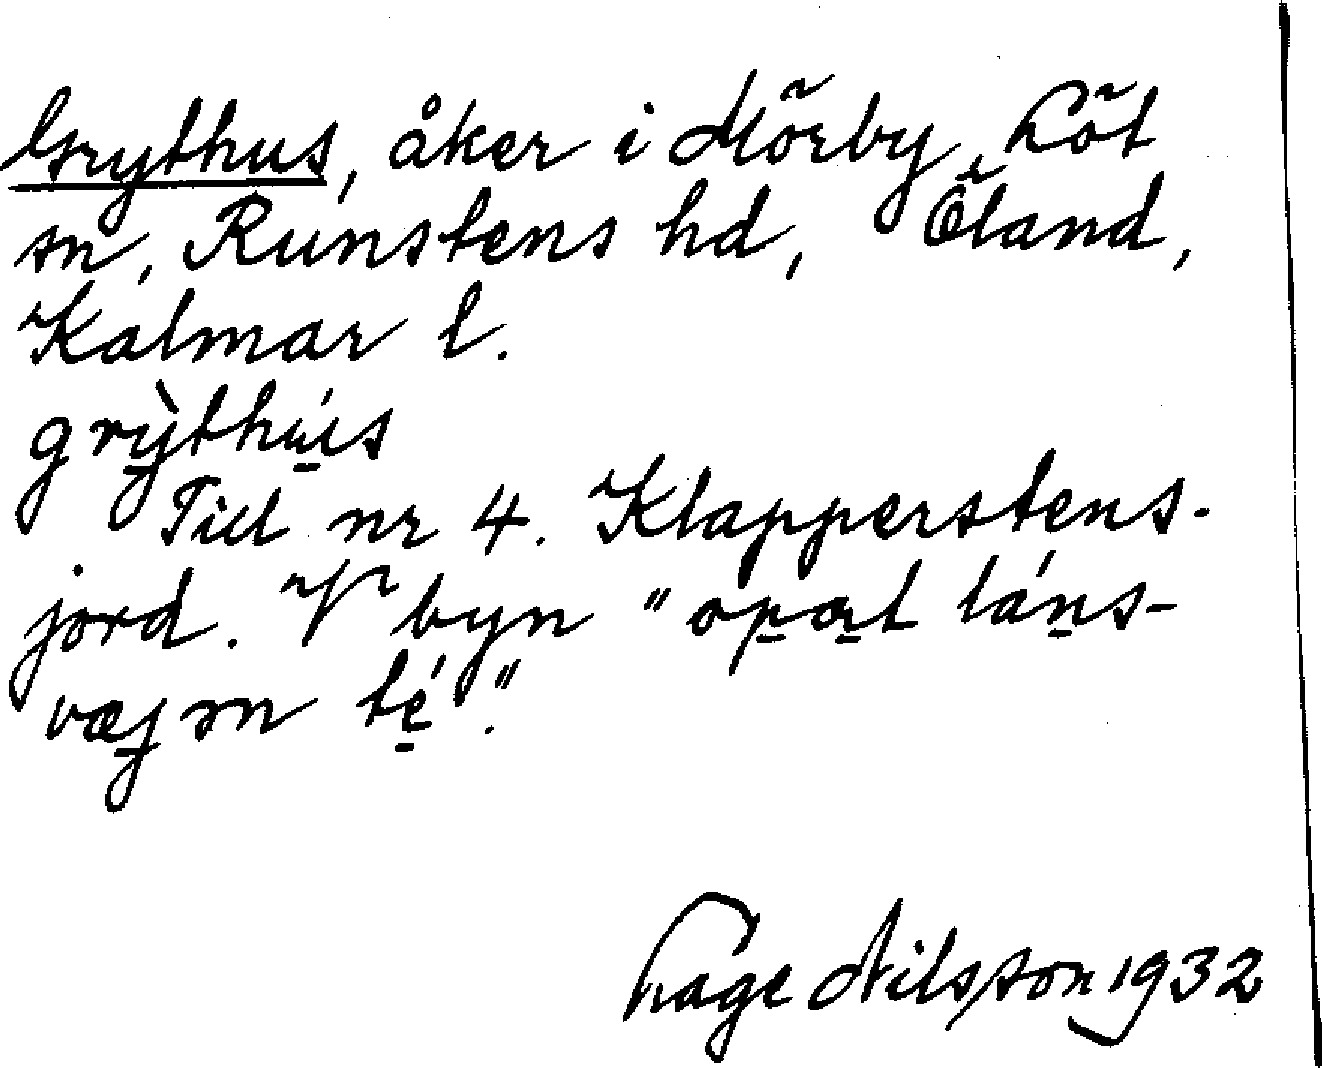 Grythus, åker i Mörby, Löt
sn, Runstens hd, Öland,
Kalmar l.
grỳthú̠s
Till nr 4. Klapperstens-
jord. V byn "op̠a̠t lán̠s-
væjən té̠".
Hage Nilsson 1932